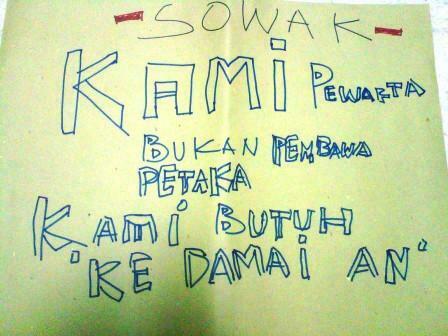 - SOWAK -
KAMi PEWARTA
BUKAN PEMBAWA
PETAKA
KAMi BUTUH
'KE DAMAi AN'